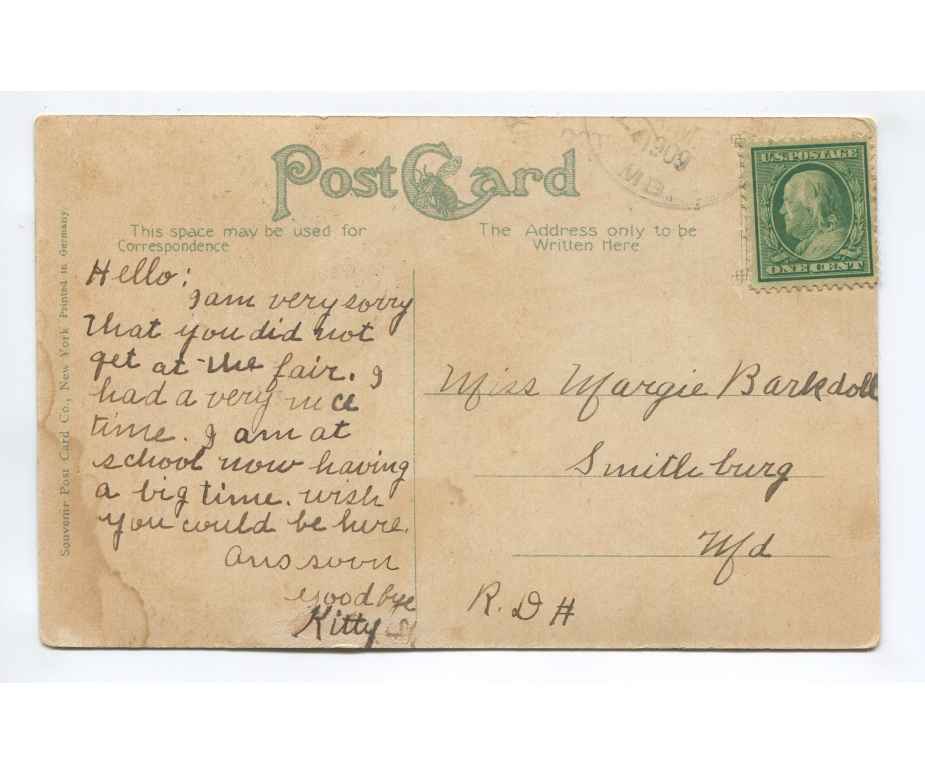 Post Card
This space may be used for
Correspondence
The Address only to be
Written Here
1909
MD.
U.S. POSTAGE
ONE CENT
Souvenir Post Card Co., New York Printed in Germany
Hello:
I am very sorry
that you did not
get at the fair. I
had a very nice
time. I am at
school now having
a big time. wish
you could be here.
Ans soon
Goodbye
Kitty
Miss Margie Barkdoll
Smithburg
Md
R. D #